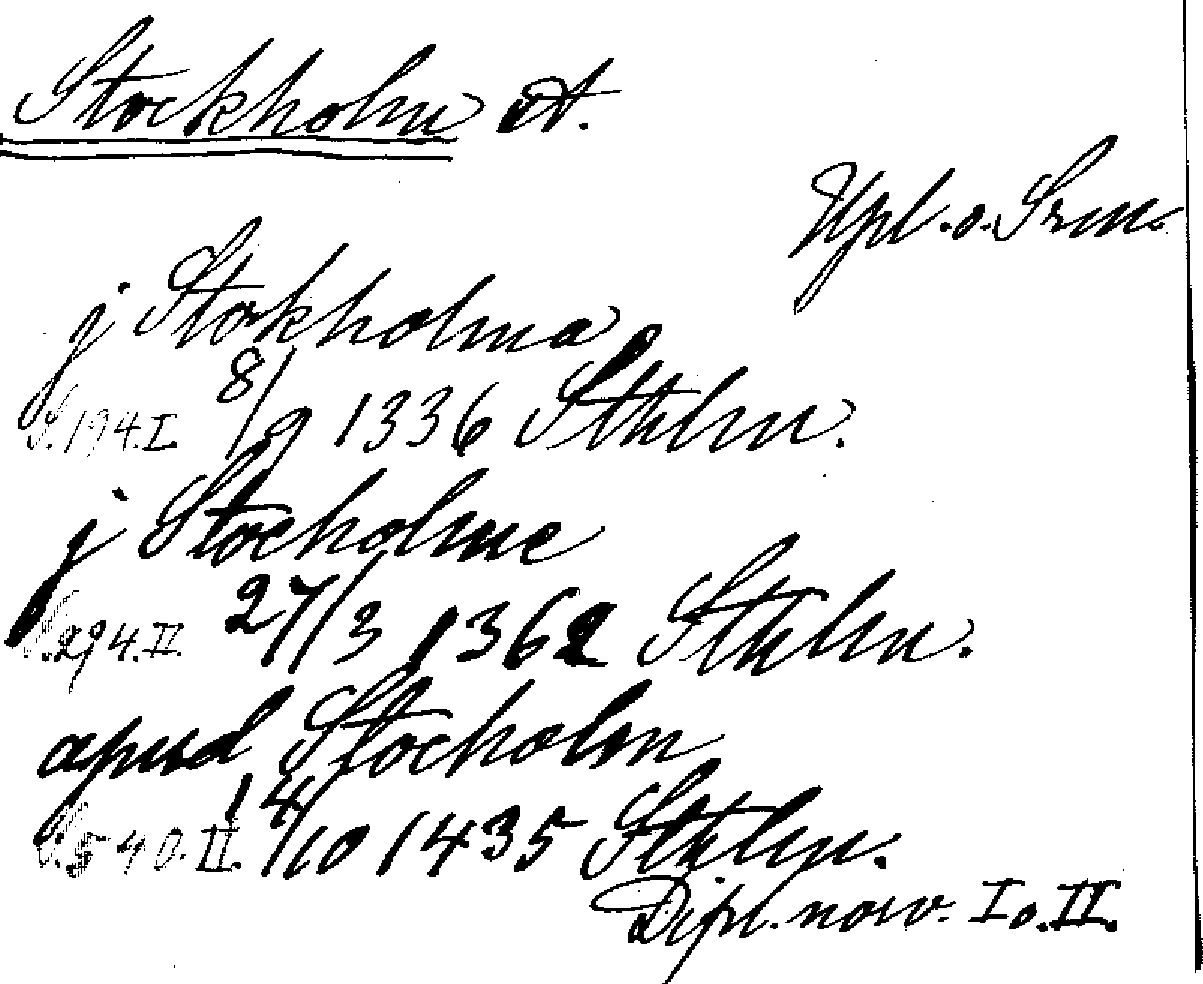 Stockholm st.
Upl. o. Srm.
j Stokholma
S. 194. I. 8/9 1336 Sthlm.
j Stocholme
S. 294. II. 27/3 1362 Sthlm.
apud Stocholm
S. 540. II. 14/10 1435 Sthlm.
Dipl. norv. I o. II.